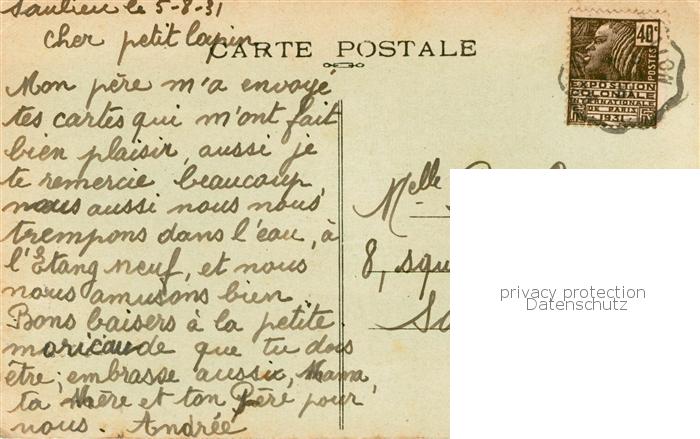 Saulieu le 5-8-31
cher petit lapin
CARTE POSTALE
40c
POSTES
EXPOSITION
COLONIALE
INTERNATIONALE
DE PARIS
1931
Mon père m'a envoyé
tes cartes qui m'ont fait
bien plaisir, aussi je
te remercie beaucoup,
nous aussi nous nous
trempons dans l'eau, à
l'Étang neuf, et nous
nous amusons bien
Bons baisers à la petite
moricaude que tu dois
être; embrasse aussi, Mama,
ta Mère et ton Père pour
nous. Andrée
Melle
8, squ
privacy protection
Datenschutz